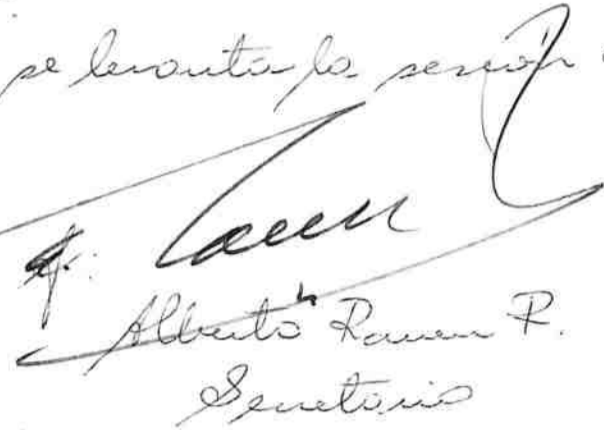 se levanta la sesión
Alberto Ramm P.
Secretario